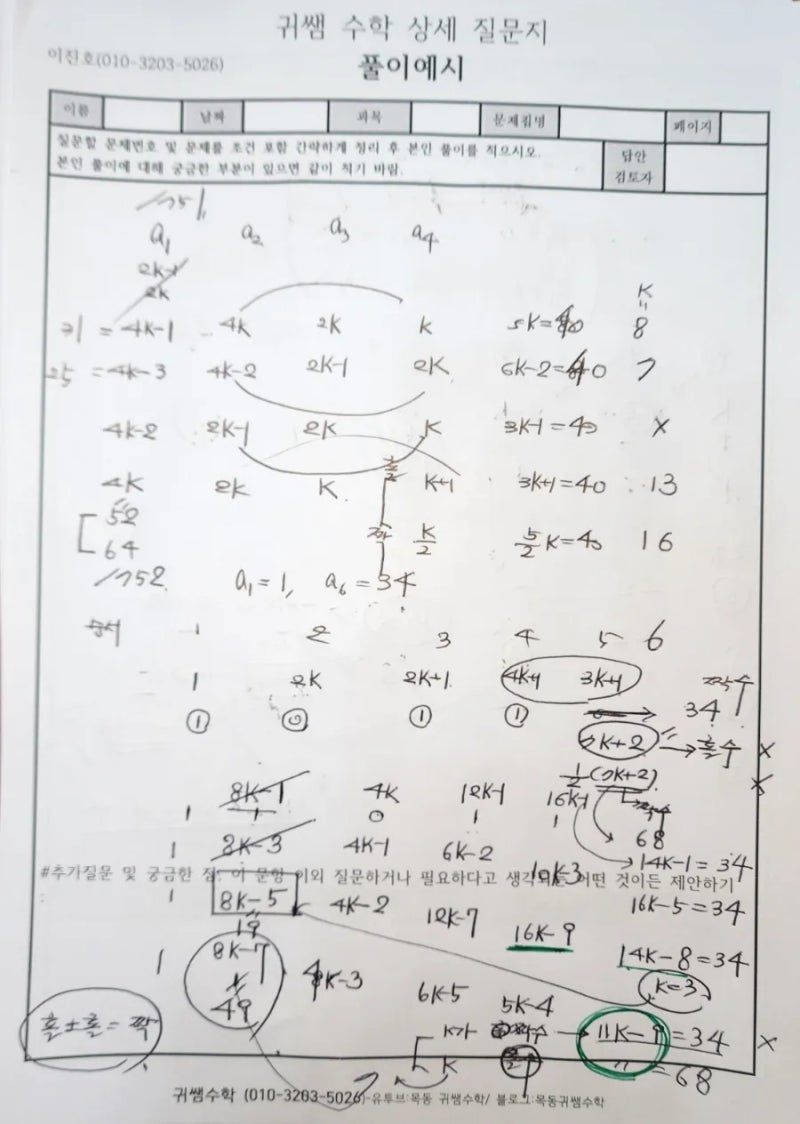 귀쌤 수학 상세 질문지
이진호(010-3203-5026)
풀이예시
이름 날짜 과목 문제집명 페이지
질문할 문제번호 및 문제를 조건 포함 간략하게 정리 후 본인 풀이를 적으시오.
본인 풀이에 대해 궁금한 부분이 있으면 같이 적기 바람.
답안
검토자
1751
a₁ a₂ a₃ a₄
2K-1
2K
K
"
31 = 4K-1 4K 2K K 5K=40 8
25 = 4K-3 4K-2 2K-1 2K 6K-2=40 7
4K-2 2K-1 2K K 3K-1=40 ×
4K 2K K 홀 K+1 3K+1=40 13
52
64
짝 K/2 5/2 K=40 16
1752 a₁=1, a₆=34
순서 1 2 3 4 5 6
1 2K 2K+1 4K+1 3K+1 짝수
① ⓪ ① ① 34
7K+2 → 홀수 ×
1/2(7K+2) ×
8K-1 4K 12K-1 16K-1 짝수
1 1 0 1 1 68
1 8K-3 4K-1 6K-2 10K-3 14K-1=34
#추가질문 및 궁금한 점: 이 문항 이외 질문하거나 필요하다고 생각되는 어떤 것이든 제안하기
1 8K-5 4K-2 12K-7 16K-9 16K-5=34
19
14K-8=34
1 8K-7 4K-3 6K-5 5K-4 K=3
49
홀±홀=짝 K가 짝수 → 11K-9=34 ×
K 홀 " =68
귀쌤수학 (010-3203-5026)-유투브:목동 귀쌤수학/ 블로그:목동귀쌤수학